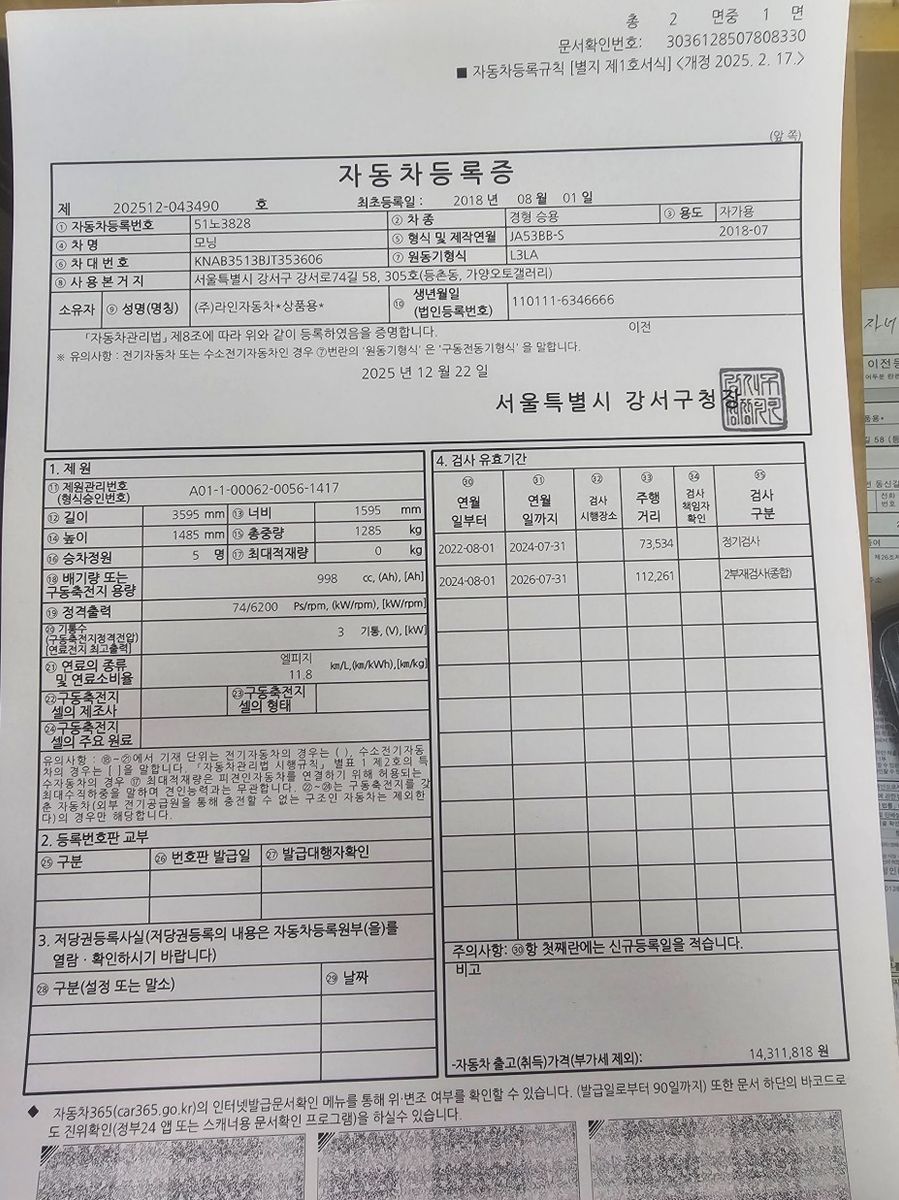 총 2 면중 1 면
문서확인번호: 3036128507808330
■ 자동차등록규칙 [별지 제1호서식] <개정 2025. 2. 17.>
(앞 쪽)
자동차등록증
제 202512-043490 호 최초등록일 : 2018 년 08 월 01 일
① 자동차등록번호 51노3828 ② 차 종 경형 승용 ③ 용도 자가용
④ 차 명 모닝 ⑤ 형식 및 제작연월 JA53BB-S 2018-07
⑥ 차 대 번 호 KNAB3513BJT353606 ⑦ 원동기형식 L3LA
⑧ 사 용 본 거 지 서울특별시 강서구 강서로74길 58, 305호(등촌동, 가양오토갤러리)
소유자 ⑨ 성명(명칭) (주)라인자동차*상품용* ⑩ 생년월일 (법인등록번호) 110111-6346666
「자동차관리법」 제8조에 따라 위와 같이 등록하였음을 증명합니다. 이전
※ 유의사항 : 전기자동차 또는 수소전기자동차인 경우 ⑦번란의 '원동기형식' 은 '구동전동기형식' 을 말합니다.
2025 년 12 월 22 일
서울특별시 강서구청장
1. 제 원
⑪ 제원관리번호 (형식승인번호) A01-1-00062-0056-1417
⑫ 길이 3595 mm ⑬ 너비 1595 mm
⑭ 높이 1485 mm ⑮ 총중량 1285 kg
⑯ 승차정원 5 명 ⑰ 최대적재량 0 kg
⑱ 배기량 또는 구동축전지 용량 998 cc, (Ah), [Ah]
⑲ 정격출력 74/6200 Ps/rpm, (kW/rpm), [kW/rpm]
⑳ 기통수 (구동축전지정격전압) [연료전지 최고출력] 3 기통, (V), [kW]
㉑ 연료의 종류 및 연료소비율 엘피지 11.8 km/L,(km/kWh),[km/kg]
㉒ 구동축전지 셀의 제조사 ㉓ 구동축전지 셀의 형태
㉔ 구동축전지 셀의 주요 원료
유의사항 : ⑱~㉑에서 기재 단위는 전기자동차의 경우는 ( ), 수소전기자동
차의 경우는 [ ]을 말합니다. 「자동차관리법 시행규칙」 별표 1 제2호의 특
수자동차의 경우 ⑰ 최대적재량은 피견인자동차를 연결하기 위해 허용되는
최대수직하중을 말하며 견인능력과는 무관합니다. ㉒~㉔는 구동축전지를 갖
춘 자동차(외부 전기공급원을 통해 충전할 수 없는 구조인 자동차는 제외한
다)의 경우만 해당합니다.
2. 등록번호판 교부
㉕ 구분 ㉖ 번호판 발급일 ㉗ 발급대행자확인
3. 저당권등록사실(저당권등록의 내용은 자동차등록원부(을)를
열람ㆍ확인하시기 바랍니다)
㉘ 구분(설정 또는 말소) ㉙ 날짜
4. 검사 유효기간
㉚ 연월일부터 ㉛ 연월일까지 ㉜ 검사 시행장소 ㉝ 주행거리 ㉞ 검사 책임자 확인 ㉟ 검사 구분
2022-08-01 2024-07-31 73,534 정기검사
2024-08-01 2026-07-31 112,261 2부재검사(종합)
주의사항: ㉚항 첫째란에는 신규등록일을 적습니다.
비고
-자동차 출고(취득)가격(부가세 제외): 14,311,818 원
◆ 자동차365(car365.go.kr)의 인터넷발급문서확인 메뉴를 통해 위·변조 여부를 확인할 수 있습니다. (발급일로부터 90일까지) 또한 문서 하단의 바코드로
도 진위확인(정부24 앱 또는 스캐너용 문서확인 프로그램)을 하실수 있습니다.